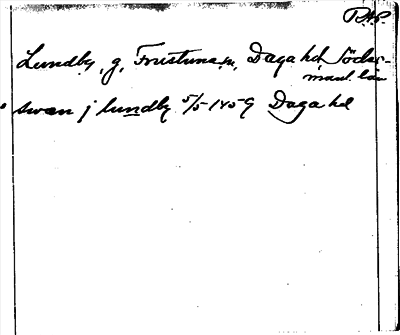 P.A.P.
Lundby, g, Frustuna sn, Daga hd, Söder-
manl. län
swen j lundby 5/5 1459 Daga hd